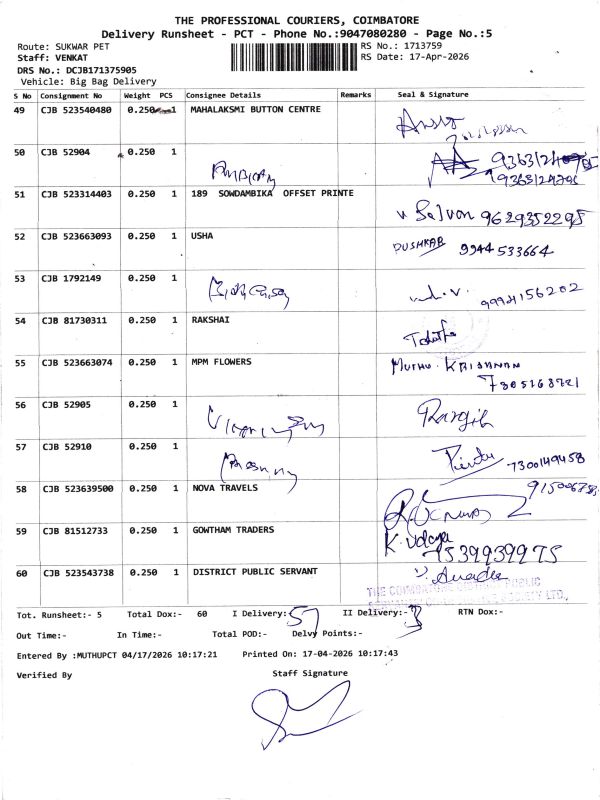 THE PROFESSIONAL COURIERS, COIMBATORE
Delivery Runsheet - PCT - Phone No.:9047080280 - Page No.:5
Route: SUKWAR PET RS No.: 1713759
Staff: VENKAT RS Date: 17-Apr-2026
DRS No.: DCJB171375905
Vehicle: Big Bag Delivery
S No Consignment No Weight PCS Consignee Details Remarks Seal & Signature
49 CJB 523540480 0.250 1 MAHALAKSMI BUTTON CENTRE
50 CJB 52904 0.250 1
9363124795
51 CJB 523314403 0.250 1 189 SOWDAMBIKA OFFSET PRINTE
v Selvan 9629352295
52 CJB 523663093 0.250 1 USHA PUSHKAR 9944533664
53 CJB 1792149 0.250 1
9994156202
54 CJB 81730311 0.250 1 RAKSHAI
55 CJB 523663074 0.250 1 MPM FLOWERS MUTHU. KRISHNAN
56 CJB 52905 0.250 1
57 CJB 52910 0.250 1
7300149458
58 CJB 523639500 0.250 1 NOVA TRAVELS
59 CJB 81512733 0.250 1 GOWTHAM TRADERS K. Udaya
7539939975
60 CJB 523543738 0.250 1 DISTRICT PUBLIC SERVANT
Tot. Runsheet:- 5 Total Dox:- 60 I Delivery:- 57 II Delivery:- 3 RTN Dox:-
Out Time:- In Time:- Total POD:- Delvy Points:-
Entered By :MUTHUPCT 04/17/2026 10:17:21 Printed On: 17-04-2026 10:17:43
Verified By Staff Signature